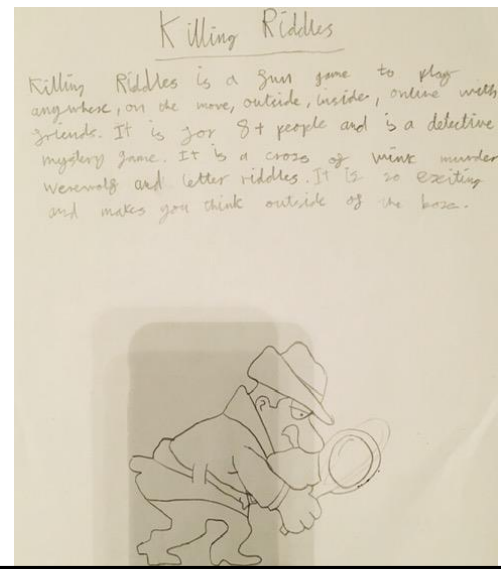 Killing Riddles
Killing Riddles is a fun game to play
anywhere, on the move, outside, inside, online with
friends. It is for 8+ people and is a detective
mystery game. It is a cross of wink murder
werewolf and letter riddles. It is so exciting
and makes you think outside of the